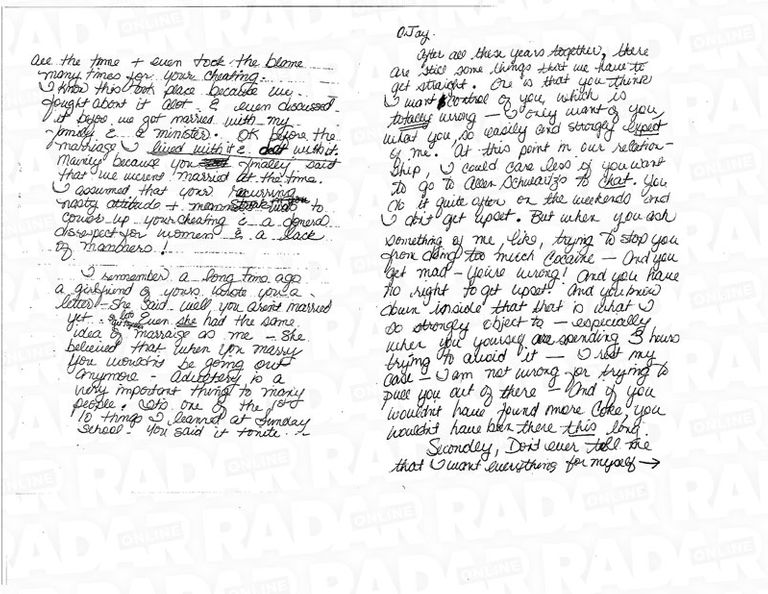 all the time + even took the blame
many times for your cheating.
I know this took place because we
fought about it alot & even discussed
it before we got married with my
family & a minister. OK before the
marriage I lived with it & delt with it
Mainly because you finaley said
that we weren't married at the time.
I assumed that your recurring
nasty attitude + was to
cover up your cheating & a general
disrespect for women & a lack
of manners!
I remember a long time ago
a girlfriend of yours wrote you a
letter - She said well you arent married
yet Even she had the same
idea of marraige as me - She
believed that when you marry
you wouldn't be going out
anymore - Adultery is a
very important thing to many
people. It's one of the first
10 things I learned at Sunday
School. You said it
O.Jay.
After all these years together, there
are still some things that we have to
get straight. One is that you think
I want control of you, which is
totally wrong - I only want of you
what you so easily and strongly expect
of me. At this point in our relation-
ship, I could care less if you want
to go to Allen Schwartz's to chat. You
do it quite often on the weekends and
I don't get upset. But when you ask
something of me, like, trying to stop you
from doing too much Cocaine - And you
get mad - You're wrong! And you have
no right to get upset. And you know
down inside that that is what I
so strongly object to - especially
when you yourself are spending 3 hours
trying to avoid it - I rest my
case - I am not wrong for trying to
pull you out of there - And if you
wouldnt have found more Coke, you
wouldn't have been there this long.
Secondly, Don't ever tell me
that I want everything for myself →
RADAR ONLINE